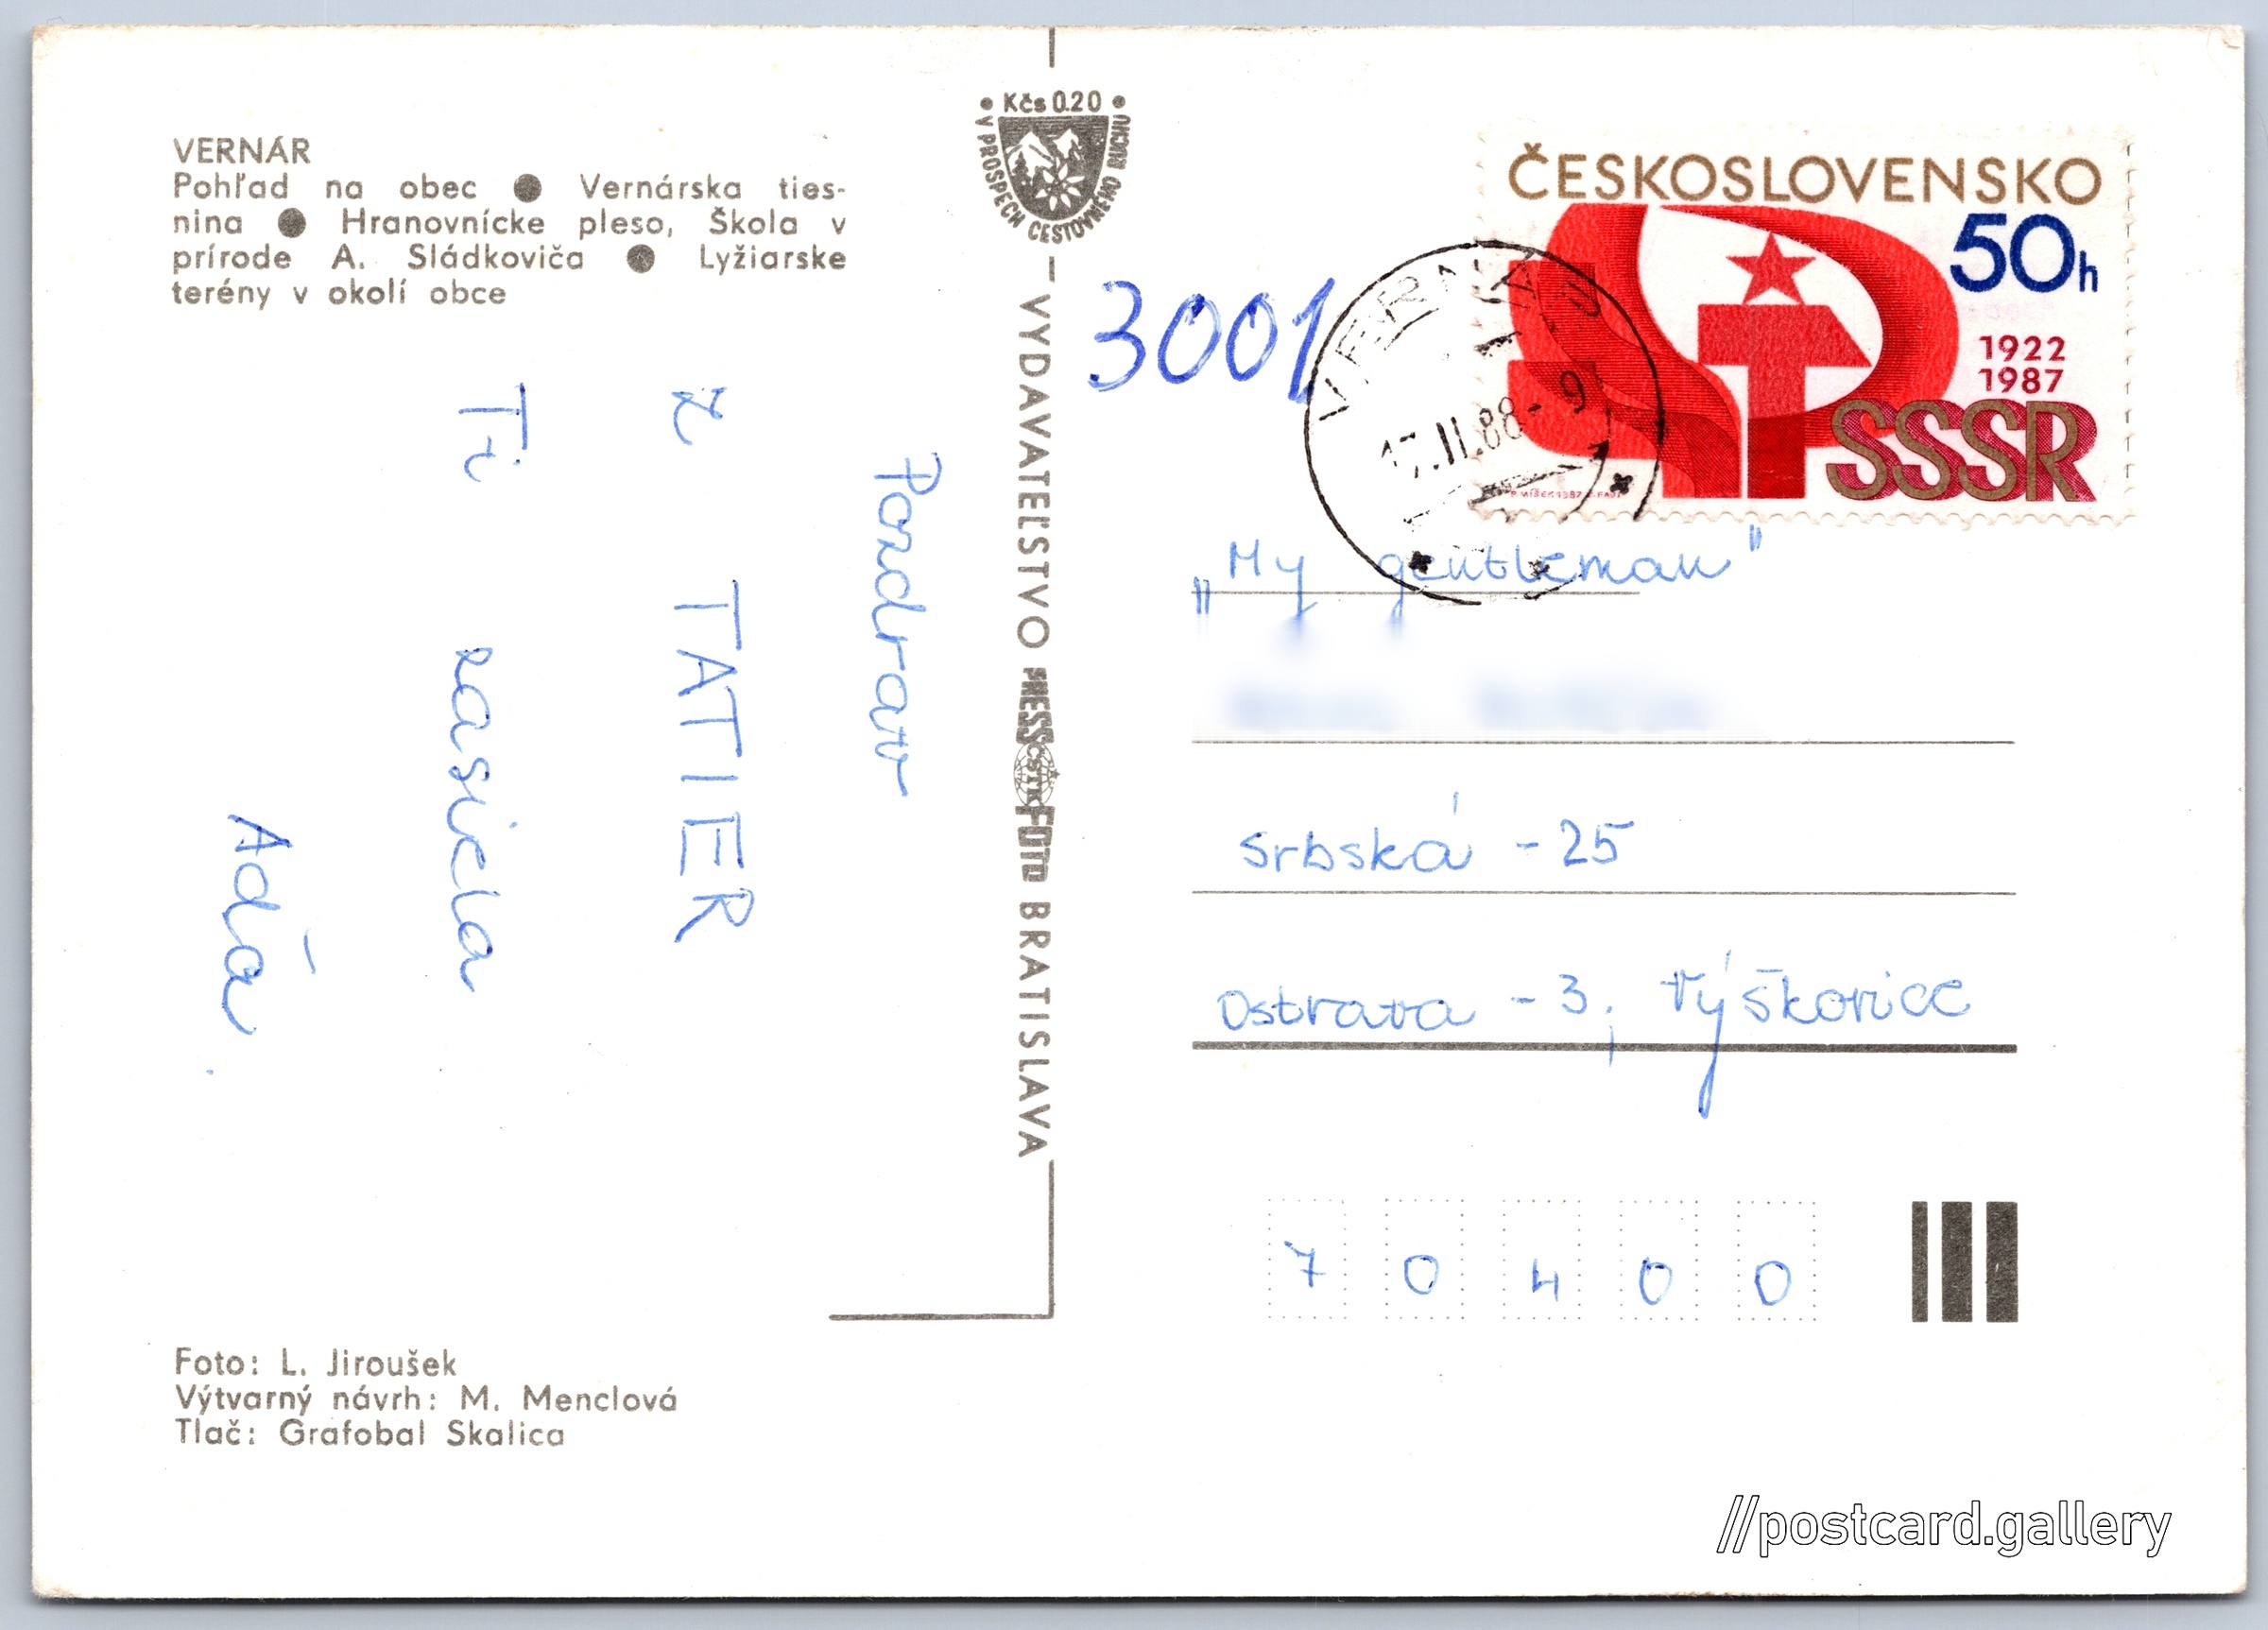 VERNÁR
Pohľad na obec ● Vernárska ties-
nina ● Hranovnícke pleso, Škola v
prírode A. Sládkoviča ● Lyžiarske
terény v okolí obce
Pozdrav
z TATIER
Ti zasiela
Aďa.
Foto: L. Jiroušek
Výtvarný návrh: M. Menclová
Tlač: Grafobal Skalica
• Kčs 0.20 •
V PROSPECH CESTOVNÉHO RUCHU
VYDAVATEĽSTVO PRESSFOTO BRATISLAVA
ČSTK
3001
ČESKOSLOVENSKO
50h
1922
1987
SSSR
VERNÁR
17.II.88-9
„My gentleman"
Srbská - 25
Ostrava - 3, Výškovice
7 0 4 0 0
//postcard.gallery